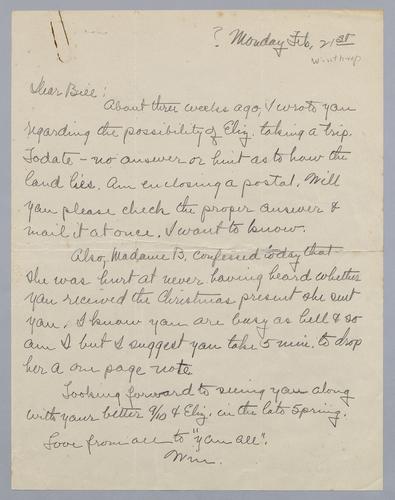 ? Monday Feb, 21st
Winthrop
Dear Bill:
About three weeks ago, I wrote you
regarding the possibility of Eliz. taking a trip.
To date - no answer or hint as to how the
land lies. Am enclosing a postal. Will
you please check the proper answer &
mail it at once. I want to know.
Also, Madame B. confessed today that
she was hurt at never having heard whether
you received the Christmas present she sent
you. I know you are busy as hell & so
am I but I suggest you take 5 min. to drop
her a one page note.
Looking forward to seeing you along
with your better 9/10 & Eliz. in the late Spring.
Love from all to "you all".
Wm.